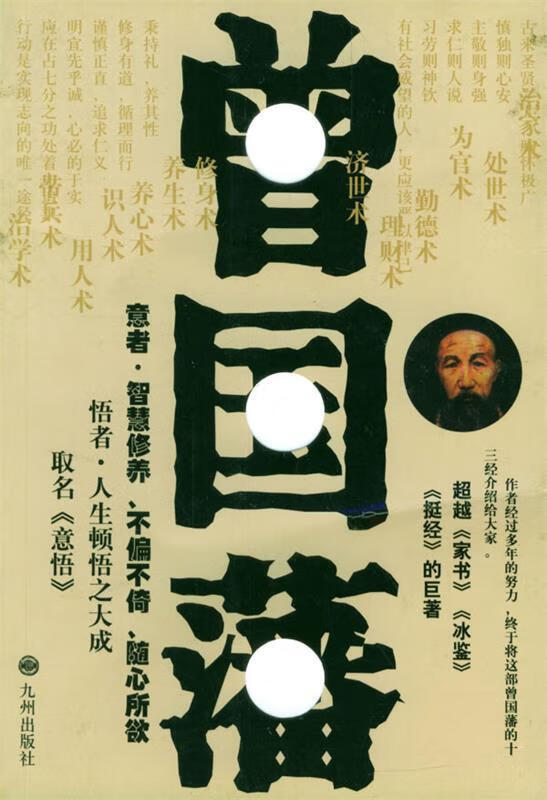 曾国藩
古来圣贤
慎独则心安
主敬则身强
求仁则人说
习劳则神钦
有社会威望的人，更应该严以律己
治家术
处世术
为官术
勤德术
理财术
济世术
修身术
养生术
养心术
识人术
用人术
治学术
秉持礼，养其性
修身有道，循理而行
谨慎正直，追求仁义
明宜先乎诚，心必的于实
应在占七分之功处着
行动是实现志向的唯一途径
作者经过多年的努力，终于将这部曾国藩的十
三经介绍给大家。
超越《家书》《冰鉴》
《挺经》的巨著
意者·智慧修养、不偏不倚、随心所欲
悟者·人生顿悟之大成
取名《意悟》
九州出版社